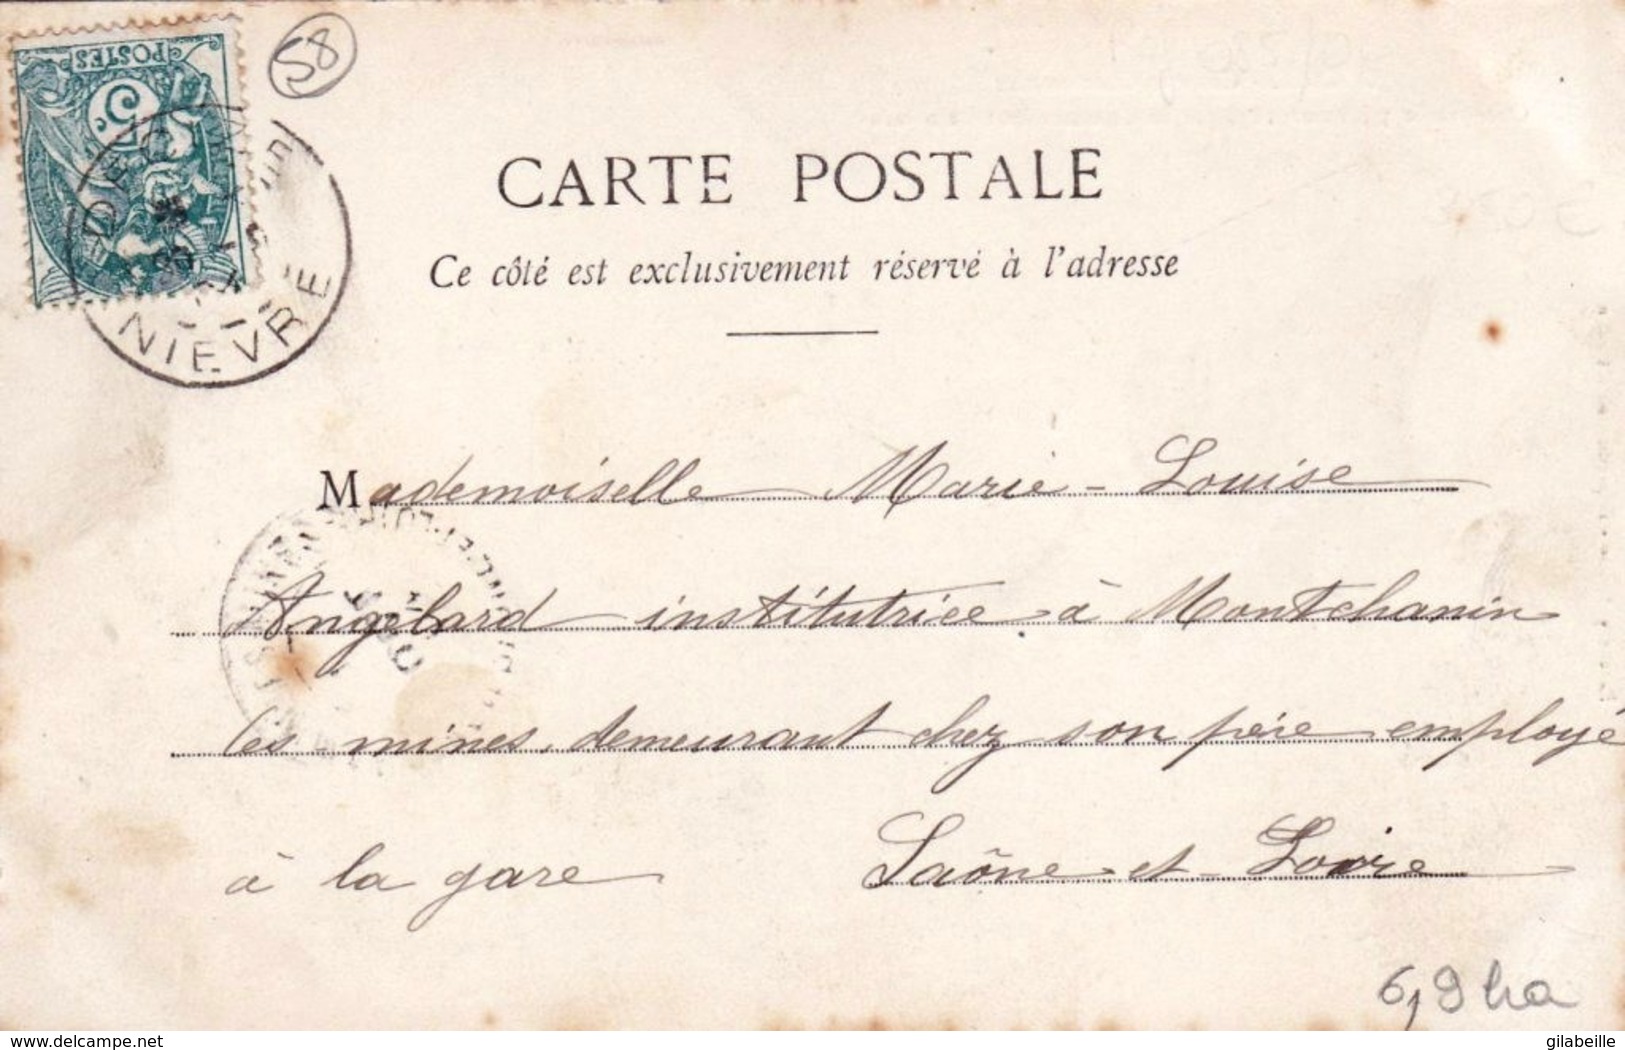 58
POSTES
5
DECIZE
NIEVRE
CARTE POSTALE
Ce côté est exclusivement réservé à l'adresse
Mademoiselle Marie-Louise
Angelard institutrice à Montchanin
les mines, demeurant chez son père employé
à la gare Saône-et-Loire
6,9 ha
www.delcampe.net
gilabeille